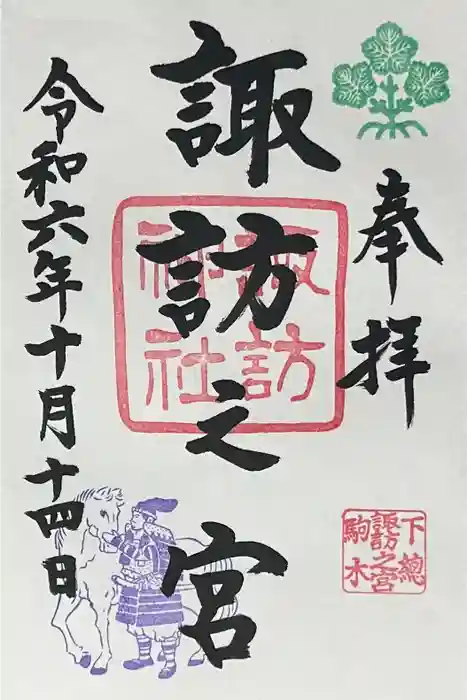 奉拝
諏訪之宮
諏訪
神社
令和六年十月十四日
下總
諏訪之宮
駒木